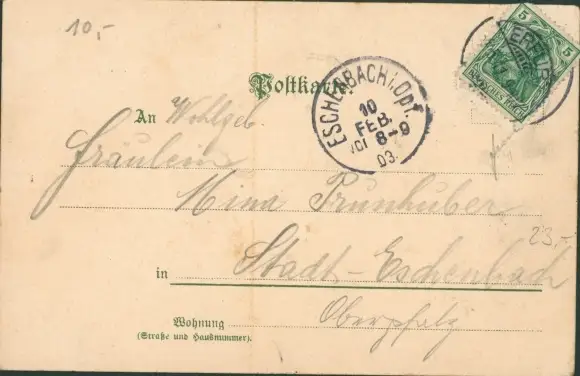 10,-
5 5
ERFURT
DEUTSCHES REICH
Postkarte.
ESCHENBACH i. Opf.
10
FEB.
8-9
03.
An Wohlgeb.
Fräulein
Mina Prunhuber
23,-
in Stadt-Eschenbach
Wohnung Oberpfalz
(Straße und Hausnummer).